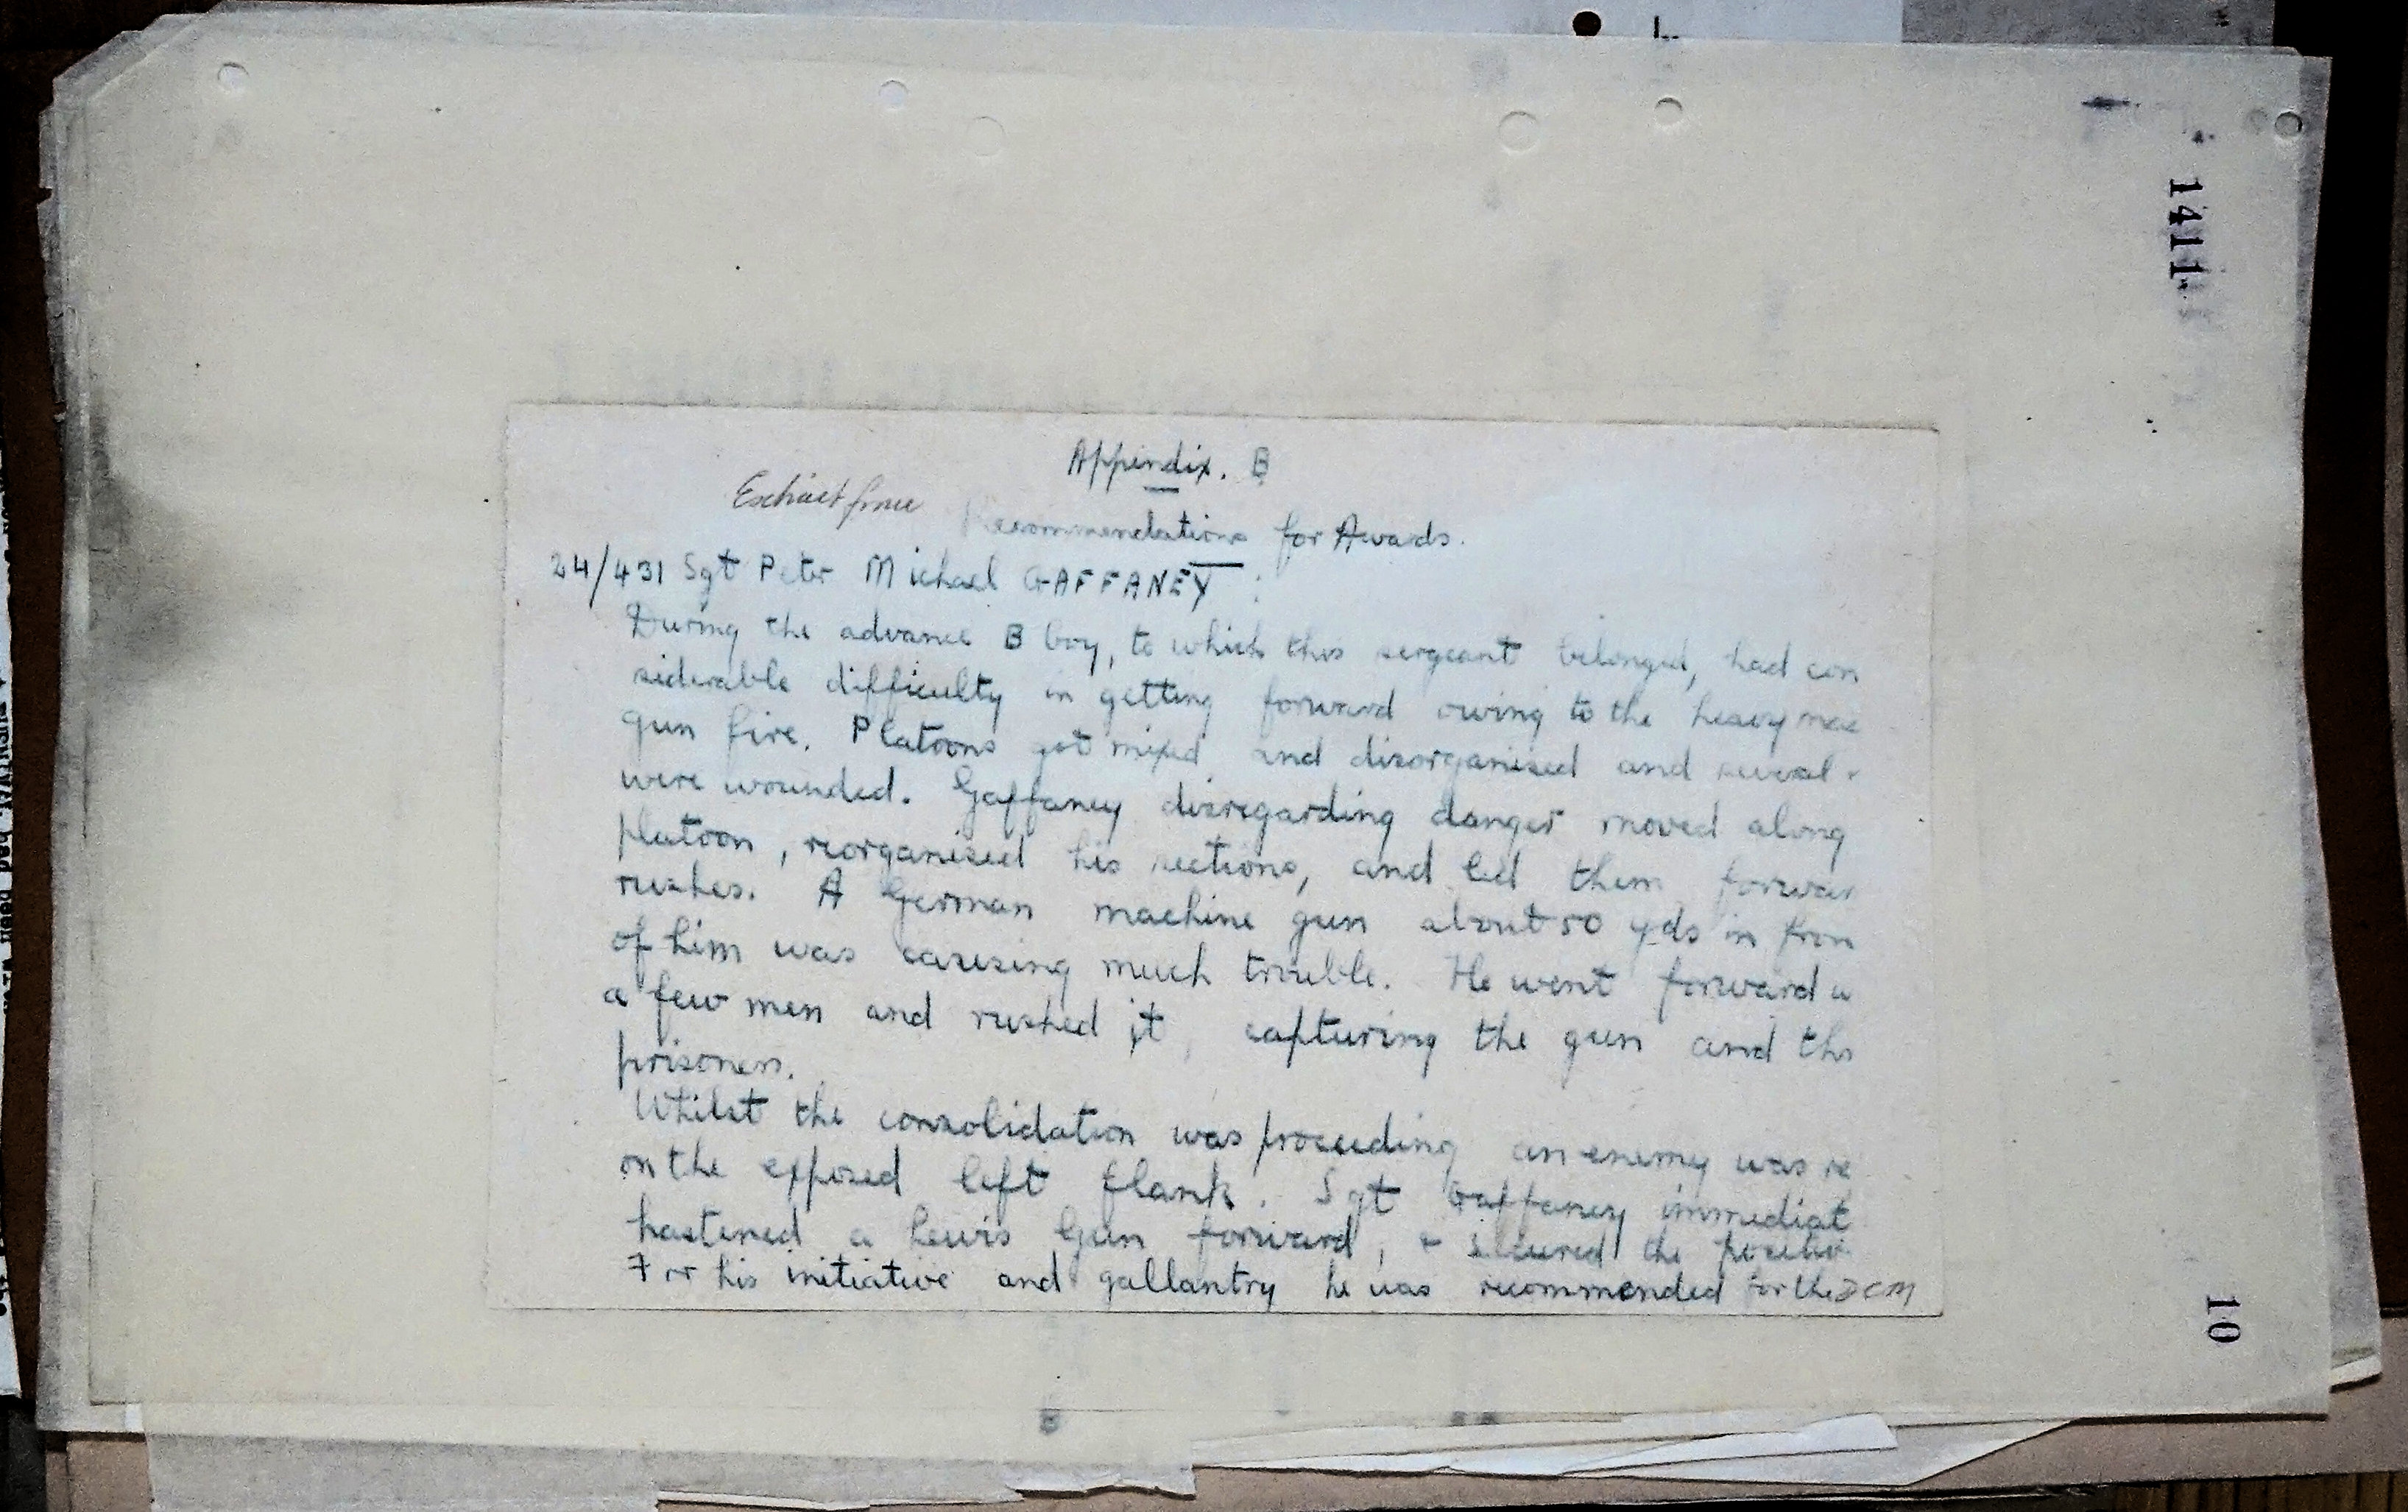 1411
Appendix. B
Extract from
Recommendations for Awards.
24/431 Sgt Peter Michael GAFFANEY :
During the advance B Coy, to which this sergeant belonged, had con
siderable difficulty in getting forward owing to the heavy mac
gun fire. Platoons got mixed and disorganised and several
were wounded. Gaffaney disregarding danger moved along
platoon, reorganised his sections, and led them forwar
rushes. A German machine gun about 50 yds in fron
of him was causing much trouble. He went forward w
a few men and rushed it, capturing the gun and th
prisoners.
Whilst the consolidation was proceeding an enemy was re
on the exposed left flank. Sgt Gaffaney immediat
hastened a Lewis Gun forward, & secured the positio
For his initiative and gallantry he was recommended for the DCM
10